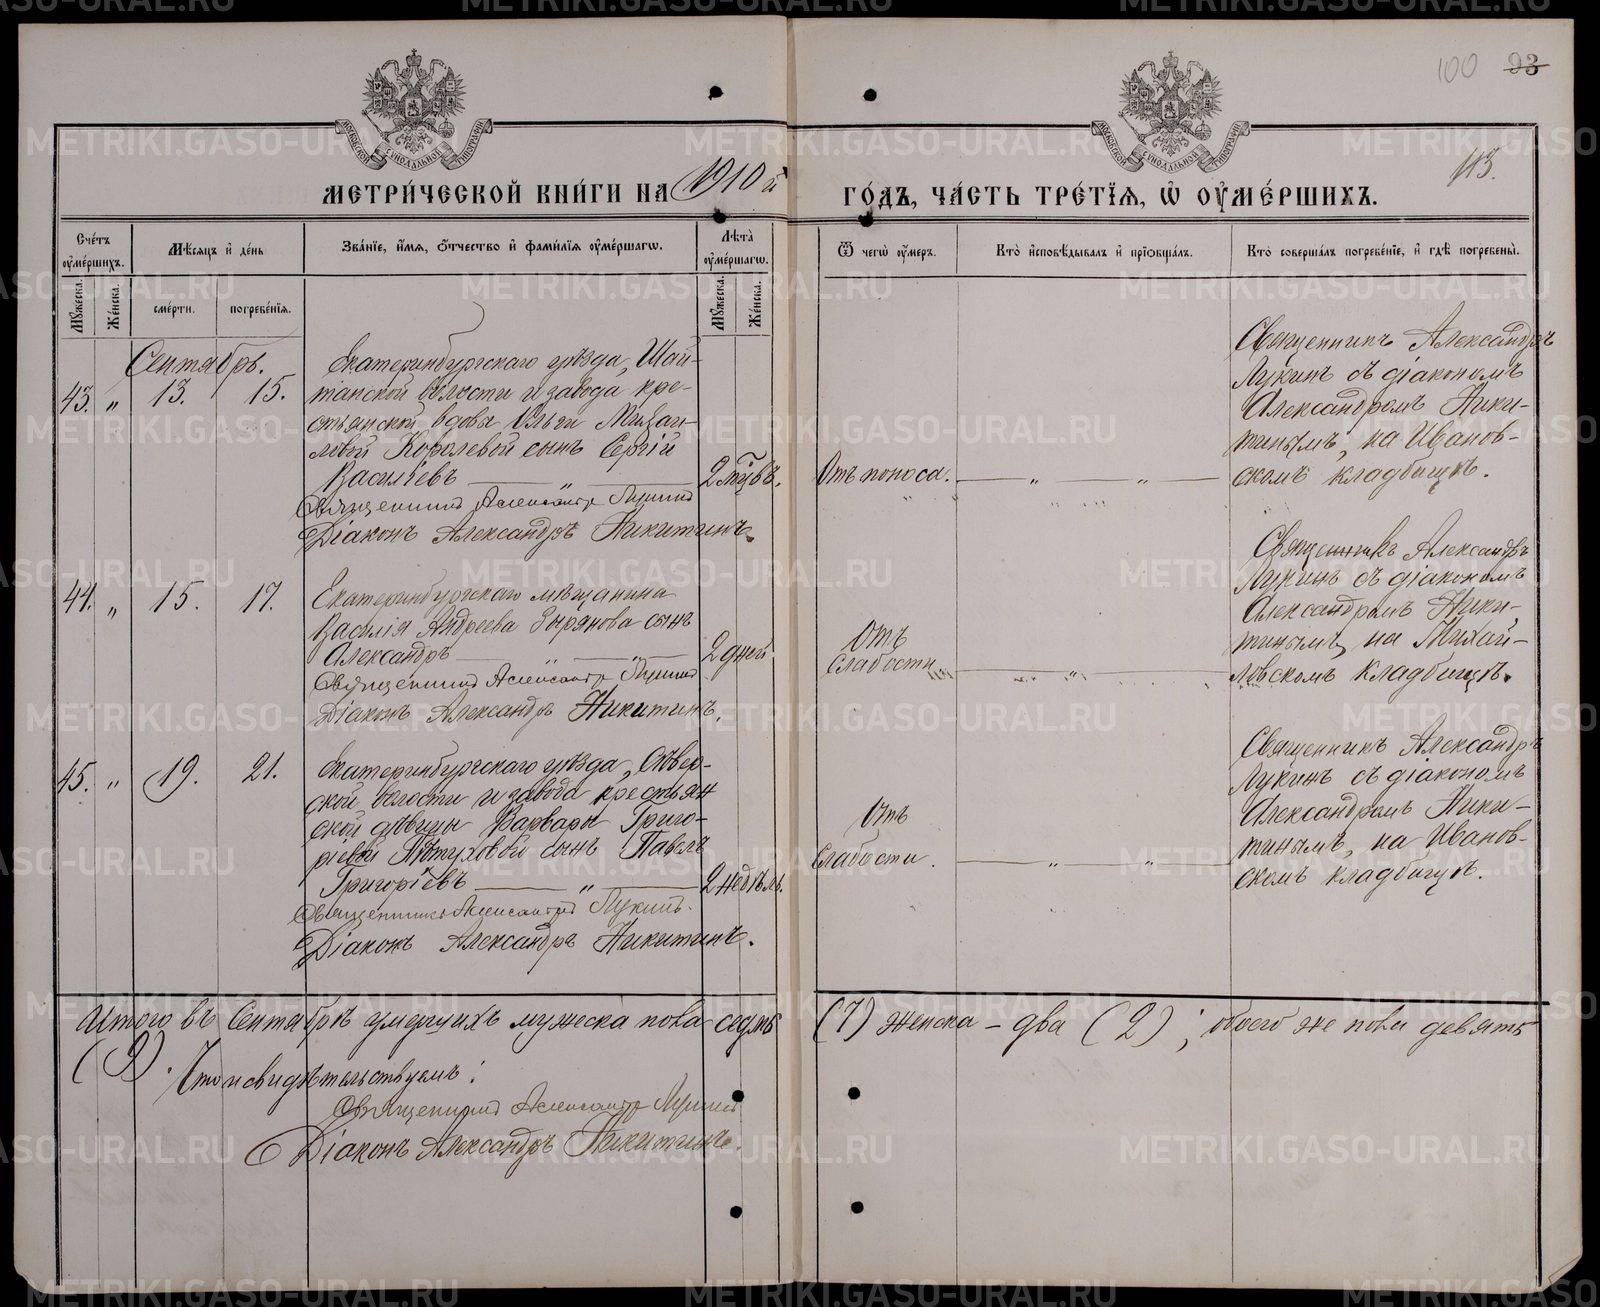 100 93
113.
МЕТРИ́ЧЕСКОЙ КНИ́ГИ НА 1910 й ГО́ДЪ, ЧА́СТЬ ТРЕ́ТІЯ, Ѡ ОУМЕ́РШИХЪ.
Сче́тъ оуме́ршихъ.
Мѣ́сяцъ и де́нь
Зва́нїе, и́мя, о́тчество и фами́лїя оуме́ршагѡ.
Лѣ́та оуме́ршагѡ.
Ѿ чегѡ̀ оу́меръ.
Кто̀ исповѣ́дывалъ и прїѡбща́лъ.
Кто̀ соверша́лъ погребе́нїе, и гдѣ̀ погребены̀.
Му́жеска.
Же́нска.
сме́рти.
погребе́нїя.
Му́жеска.
Же́нска.
Сентябрь.
43. „ 13. 15.
Екатеринбургскаго уѣзда, Шай-
танской волости и завода кре-
стьянской вдовы Ольги Михаи-
ловой Королевой сынъ Сергій
Васильевъ — „ —
2 мѣсяц.
Священникъ Александръ Лукинъ
Діаконъ Александръ Никитинъ.
Отъ поноса. — „ — „ —
Священникъ Александръ
Лукинъ съ діакономъ
Александромъ Ники-
тинымъ, на Иванов-
скомъ кладбищѣ.
44. „ 15. 17.
Екатеринбургскаго мѣщанина
Василія Андреева Зырянова сынъ
Александръ — „ — „ —
2 дней.
Священникъ Александръ Лукинъ
Діаконъ Александръ Никитинъ.
Отъ
слабости
Священникъ Александръ
Лукинъ съ діакономъ
Александромъ Ники-
тинымъ, на Михай-
ловскомъ кладбищѣ.
45. „ 19. 21.
Екатеринбургскаго уѣзда, Сѣвер-
ской волости и завода крестьян
ской дѣвицы Варвары Григо-
рьевой Пѣтуховой сынъ Павелъ
Григорьевъ — „ —
2 недѣль.
Священникъ Александръ Лукинъ.
Діаконъ Александръ Никитинъ.
Отъ
слабости. — „ — „ —
Священникъ Александръ
Лукинъ съ діакономъ
Александромъ Ники-
тинымъ, на Иванов-
скомъ кладбищѣ.
Итого въ Сентябрѣ умершихъ мужеска пола седмь (7) женска – два (2); обоего же пола девять
(9). Что и свидѣтельствуемъ:
Священникъ Александръ Лукинъ
Діаконъ Александръ Никитинъ.
METRIKI.GASO-URAL.RU